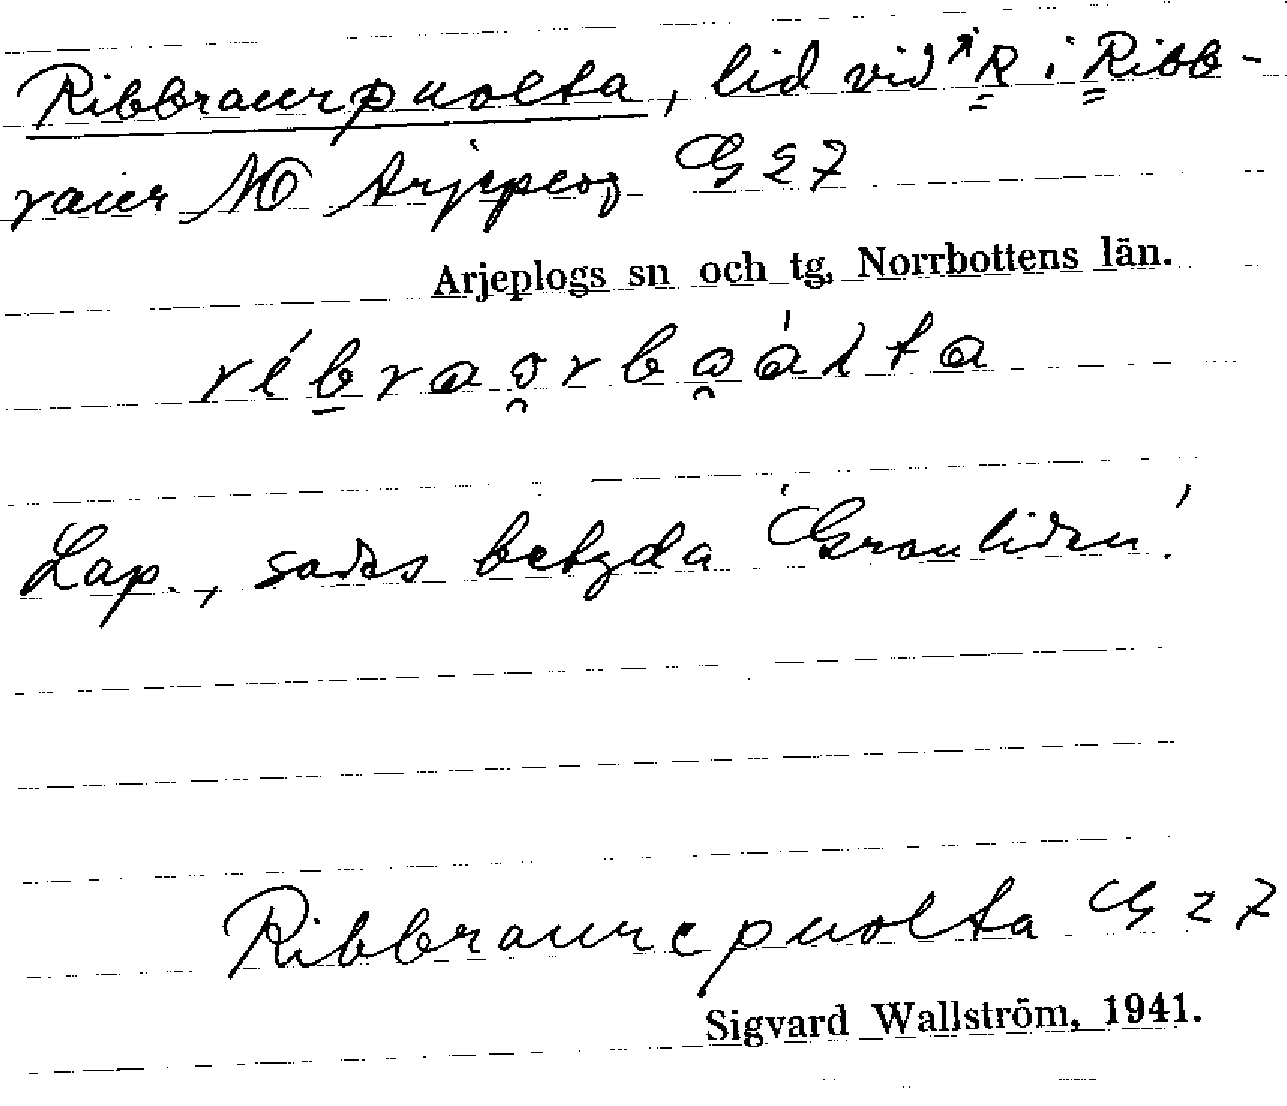 Ribbraurpuolta, lid vid R i Ribb-
raur NO Arjeplog G 27
Arjeplogs sn och tg, Norrbottens län.
Lap., sades betyda 'Granliden'.
Ribbraure puolta G 27
Sigvard Wallström, 1941.